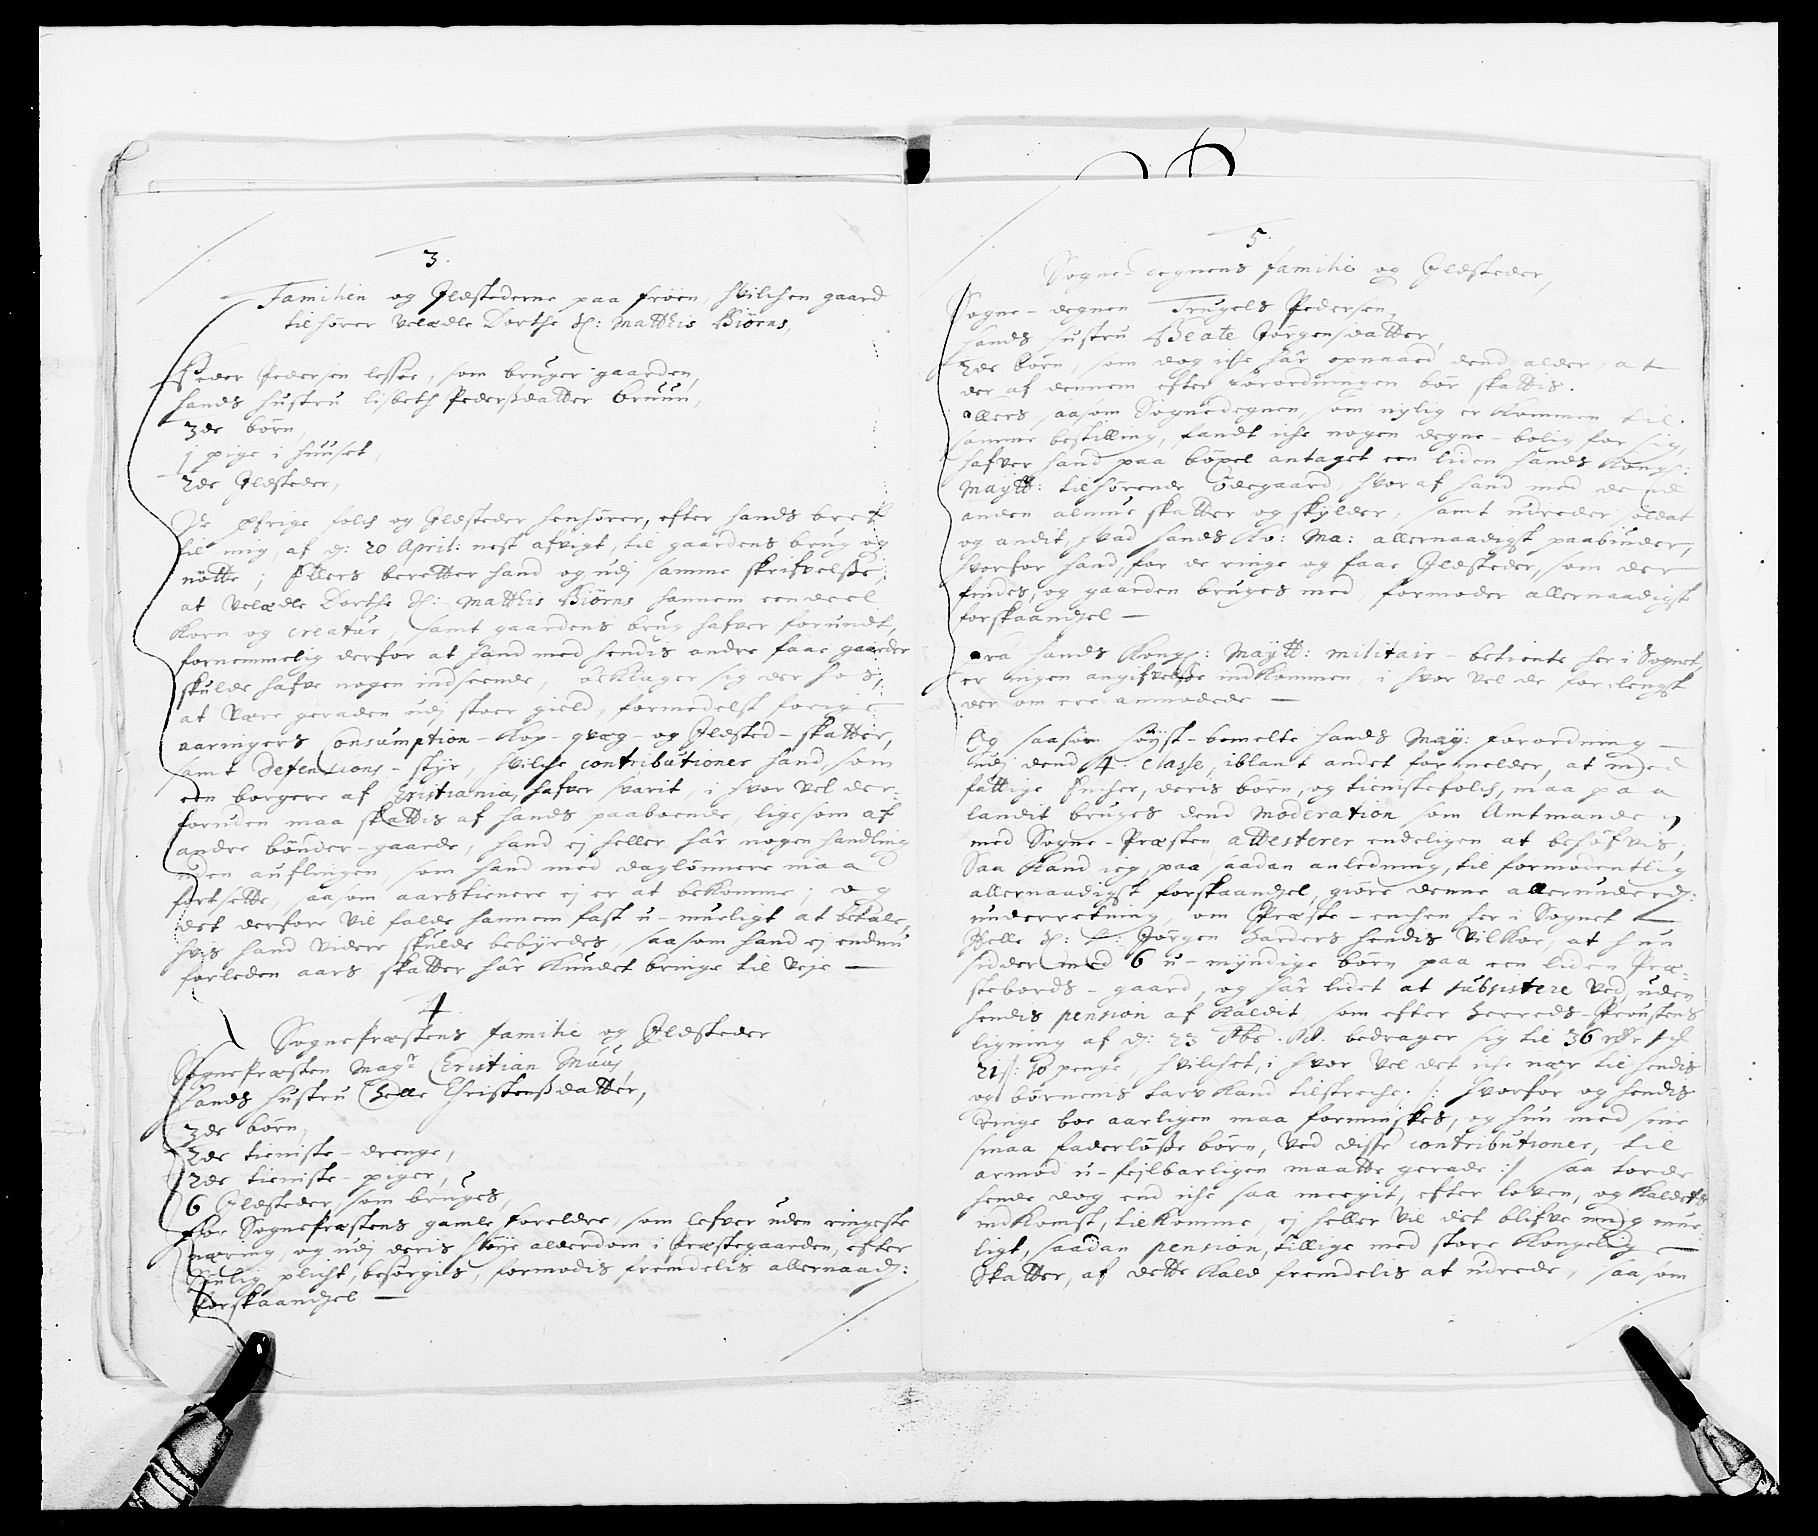 3.
Familien og Ildstederne paa frøen, hvilchen gaard
tilhører Velædle Dorthe Sl: Matthis Biørns,
Peder Pedersen lessøe, som bruger gaarden,
hands hustru lisbeth Pederßdatter bruun,
3de børn,
1 pige i huuset,
2de Ildsteder,
De øfrige folch og Ildsteder henhører, efter hands bref
til mig, af d: 20 April: nest afvigt, til gaardens brug og
nøtte; Ellers beretter hand og udj samme skrifvelße,
at Velædle Dorthe Sl: Matthis Biørns hannem eendeel
Korn og creatur, samt gaardens brug hafver forundt,
fornemmelig derfor at hand med hendis andre faae gaarder
skulde hafve nogen indseende, beklager sig der hos,
at være geraden udj stoer gield, formedelst forige
aaringers Consumption- Kop- qvæg- og Ildsted-skatter,
samt Defensions-styr, hvilche contributioner hand, som
een borgere af Christiania, hafver svarit, i hvor vel der-
foruden maa skattis af hands paaboende, ligesom af
andre bønder-gaarde, hand ej heller hâr nogen handling
uden auflingen, som hand med daglønnere maa
fortsette, saasom aarstienere ej er at bekomme; og
det derfore vil falde hannem fast u-mueligt at betale,
hvis hand videre skulde bebyrdes, saasom hand ej endnu
forleden aars skatter hâr kundet bringe til veje —
4
Sognepræstens familie og Ildsteder
Sognepræsten Magr Christian Muus,
hands hustru Helle Christenßdatter,
3de børn,
2de tieniste-drenge,
2de tieniste-piger,
6 Ildsteder, som bruges,
For Sognepræstens gamle foreldre, som lefver uden ringeste
næring, og udj deris høye alderdom i Præstegaarden, efter
Sønlig plicht, besørgis, formodis fremdelis allernaad:
forskaandsel —
5.
Sogne-degnens familie og Ildsteder,
Sogne-degnen Trugels Pedersen,
hands hustru Beate Jørgensdatter,
2de børn, som dog iche hâr opnaaed dend alder, at
der af dennem efter forordningen bør skattis.
Ellers saasom Sognedegnen, som nylig er kommen til
samme bestilling, fandt iche nogen degne-bolig for sig,
hafver hand paa bøpel antaget een liden hands Kongl:
Maytt: tilhørende ødegaard, hvoraf hand med den
anden almue skatter og skylder, samt udreder soldat
og andit, hvad hands Ko: Ma: allernaadigst paabiuder,
hvorfor hand, for de ringe og faae Ildsteder, som der
findes, og gaarden bruges med, formoder allernaadigst
forskaandsel —
Fra hands Kongl: Maytt: militair-betiente her i Sognet,
er ingen angifvelße indkommen, i hvor vel de for lengst
der om ere anmodede —
Og saasom høyst-bemelte hands May: forordning
udj dend 4 Classe, iblant andet formelder, at med
fattige Encher, deris børn, og tienistefolch, maa paa
landit bruges dend Moderation som Amtmanden
med Sogne-Præsten attesterer endeligen at behøfvis;
Saa kand ieg, paa saadan anledning, til formodentlig
allernaadigst forskaandsel, giøre denne allerunderd:
underretning, om Præste-enchen her i Sognet
Helle Sl: Hr: Jørgen Harders hendis vilkor, at hun
sidder med 6 u-myndige børn paa een liden Præ-
stebords-gaard, og hâr lidet at subsistere ved, uden
hendis pension af kaldit, som efter Herreds-Proustens
ligning af d: 23 bedrager sig til 36 rdr
21 ß: penge, hvilchet, i hvor vel det iche nær til hendis
og børnenis tarv kand tilstreche; /: hvorfor og hendis
ringe boe aarligen maa forminskes, og hun med sine
smaa faderløße børn, ved disse contributioner, til
armod u-fejlbarligen maatte gerade :/ saa torde
hende dog end iche saa meegit, efter loven, og kaldets
indkomst, tilkomme, ej heller vil det blifve mig mue-
ligt, saadan pension, tillige med store Kongelig
Skatter, af dette kald fremdelis at udrede, saasom